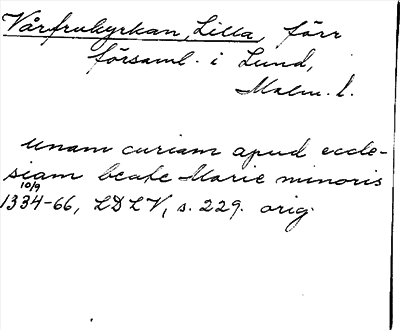 Vårfrukyrkan, Lilla, förr
församl. i Lund,
Malm. l.
unam curiam apud eccle-
siam beate Marie minoris
10/9
1334-66, LDLV, s. 229. orig.